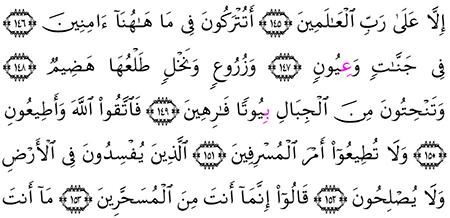 إِلَّا عَلَىٰ رَبِّ ٱلْعَٰلَمِينَ ﴿١٤٥﴾ أَتُتْرَكُونَ فِى مَا هَٰهُنَآ ءَامِنِينَ ﴿١٤٦﴾
فِى جَنَّٰتٍ وَعِيُونٍ ﴿١٤٧﴾ وَزُرُوعٍ وَنَخْلٍ طَلْعُهَا هَضِيمٌ ﴿١٤٨﴾
وَتَنْحِتُونَ مِنَ ٱلْجِبَالِ بِيُوتًا فَٰرِهِينَ ﴿١٤٩﴾ فَٱتَّقُوا۟ ٱللَّهَ وَأَطِيعُونِ
﴿١٥٠﴾ وَلَا تُطِيعُوٓا۟ أَمْرَ ٱلْمُسْرِفِينَ ﴿١٥١﴾ ٱلَّذِينَ يُفْسِدُونَ فِى ٱلْأَرْضِ
وَلَا يُصْلِحُونَ ﴿١٥٢﴾ قَالُوٓا۟ إِنَّمَآ أَنتَ مِنَ ٱلْمُسَحَّرِينَ ﴿١٥٣﴾ مَآ أَنتَ